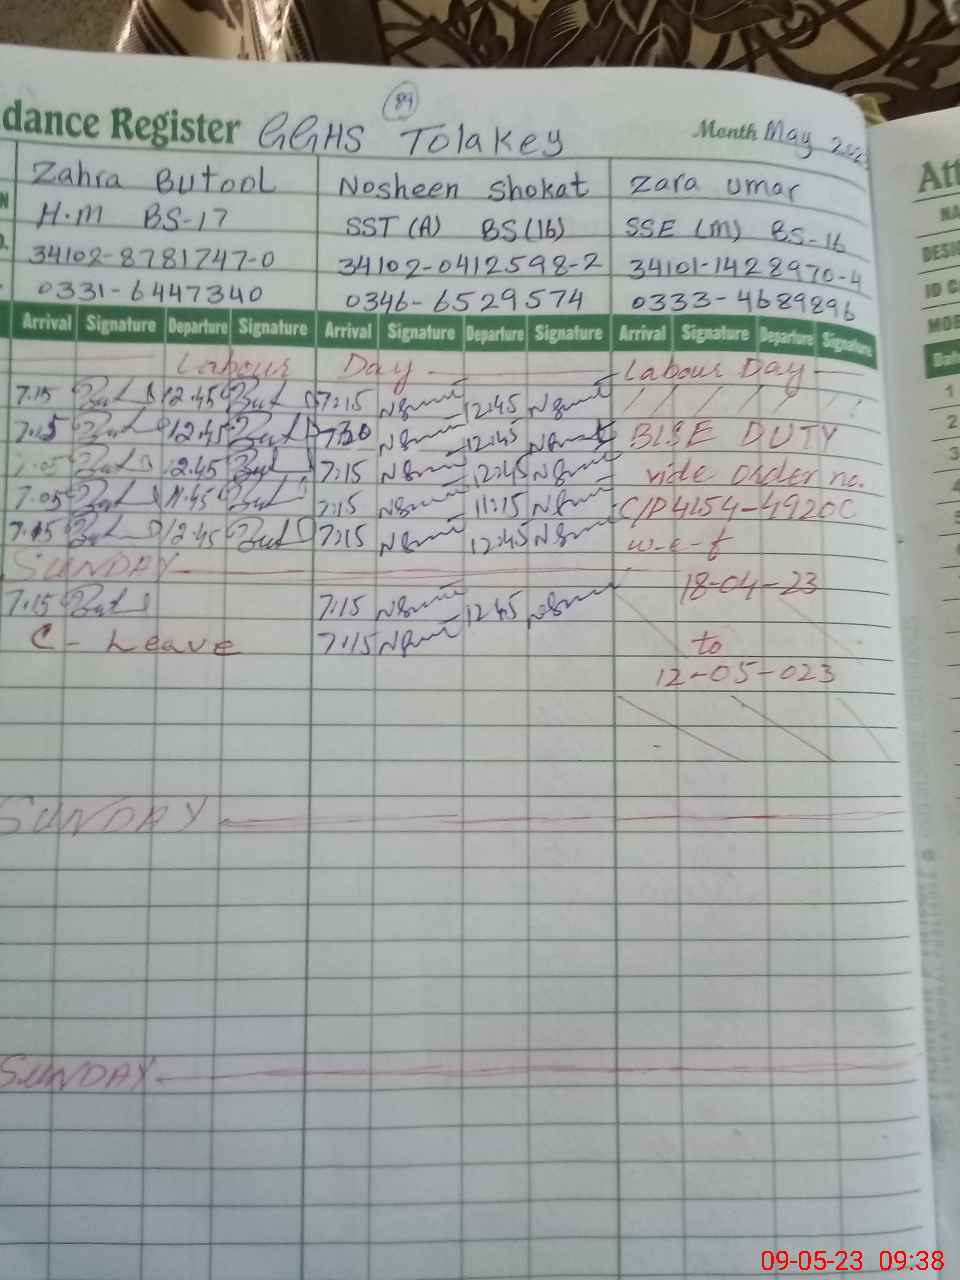 89
dance Register GGHS Tolakey Month May
Zahra Butool Nosheen Shokat Zara Umar
H.M BS-17 SST (A) BS(16) SSE (M) BS-16
34102-8781747-0 34102-0412598-2 34101-1428970-4
0331-6447340 0346-6529574 0333-4689896
Arrival Signature Departure Signature Arrival Signature Departure Signature Arrival Signature Departure Signature
Labour Day Labour Day
7.15 12.45 7:15 12:45
7.15 12.45 12:45 BISE DUTY
7.05 12.45 7:15 12:45 vide Order no.
7.05 11.45 7:15 11:15 C/P4154-4920C
7.15 12.45 7:15 12:45 w-e-f
SUNDAY 18-04-23
7.15 7:15 12:45
C - Leave 7:15 to
12-05-023
SUNDAY
SUNDAY
Att
NA
DESI
ID C
MOB
Dat
1
2
3
4
5
09-05-23 09:38